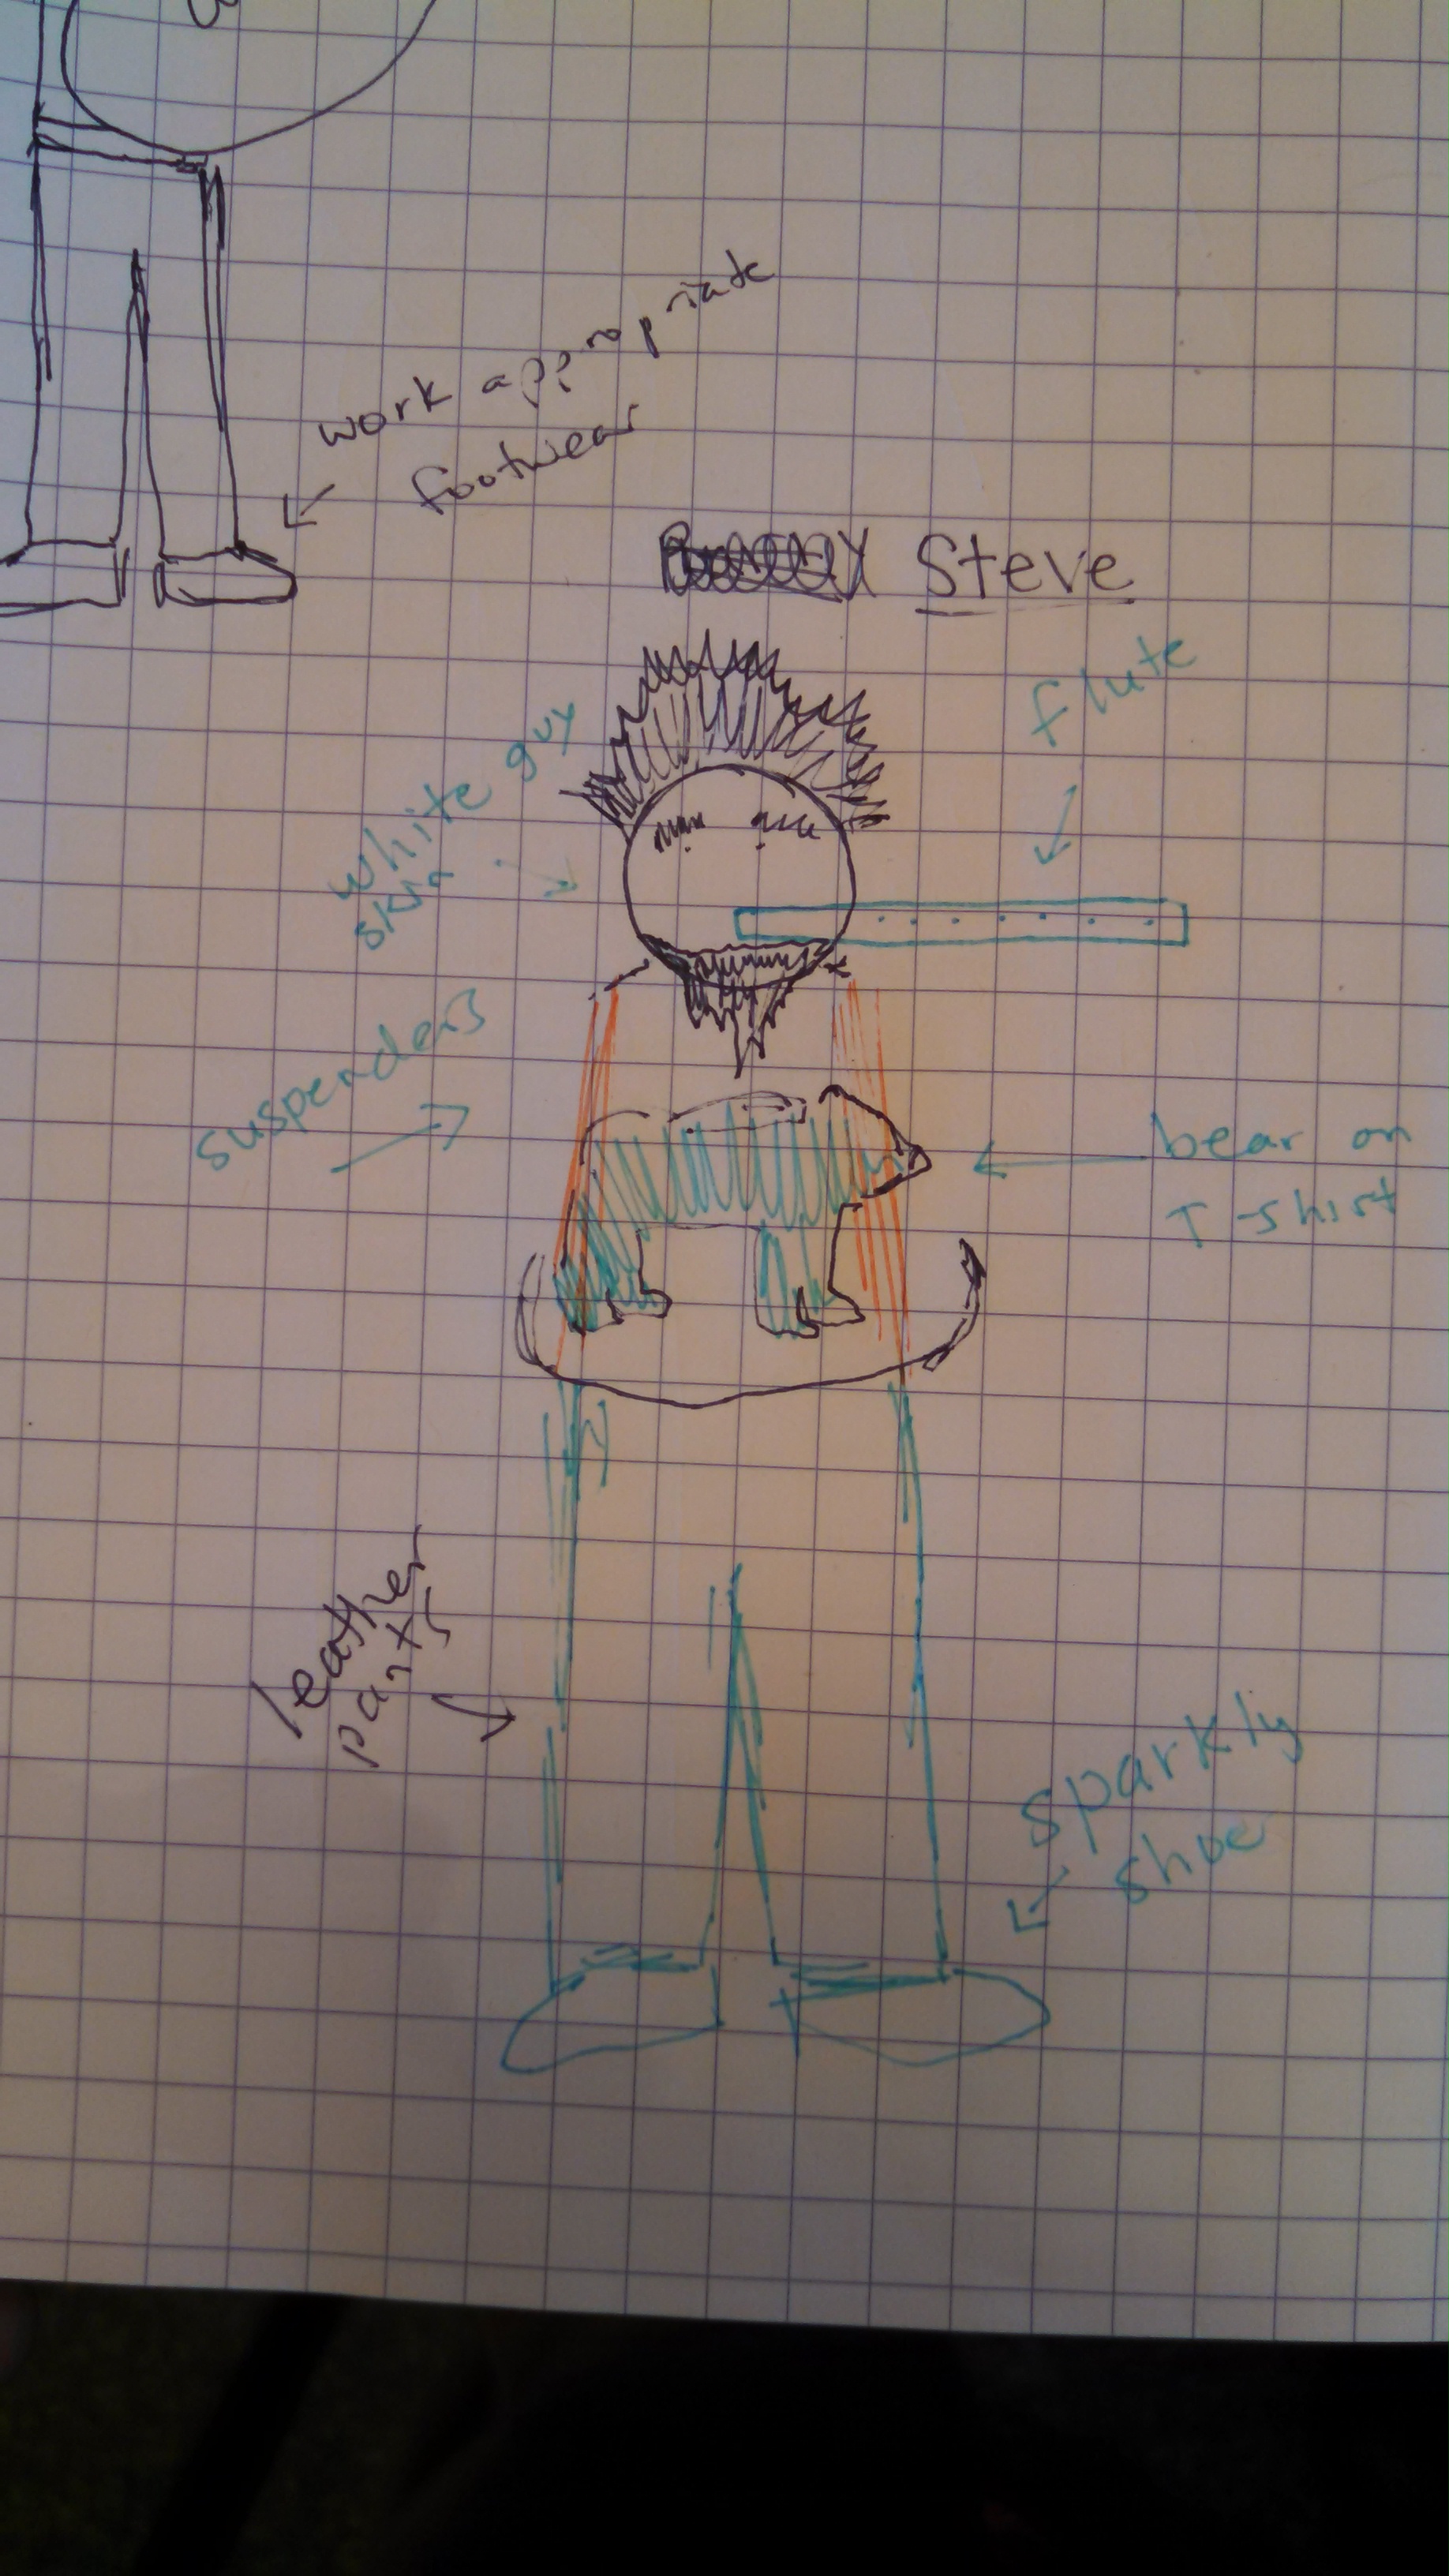 work appropriate
footwear
Steve
flute
white guy
skin
suspenders
bear on
T-shirt
leather
pants
sparkly
shoe